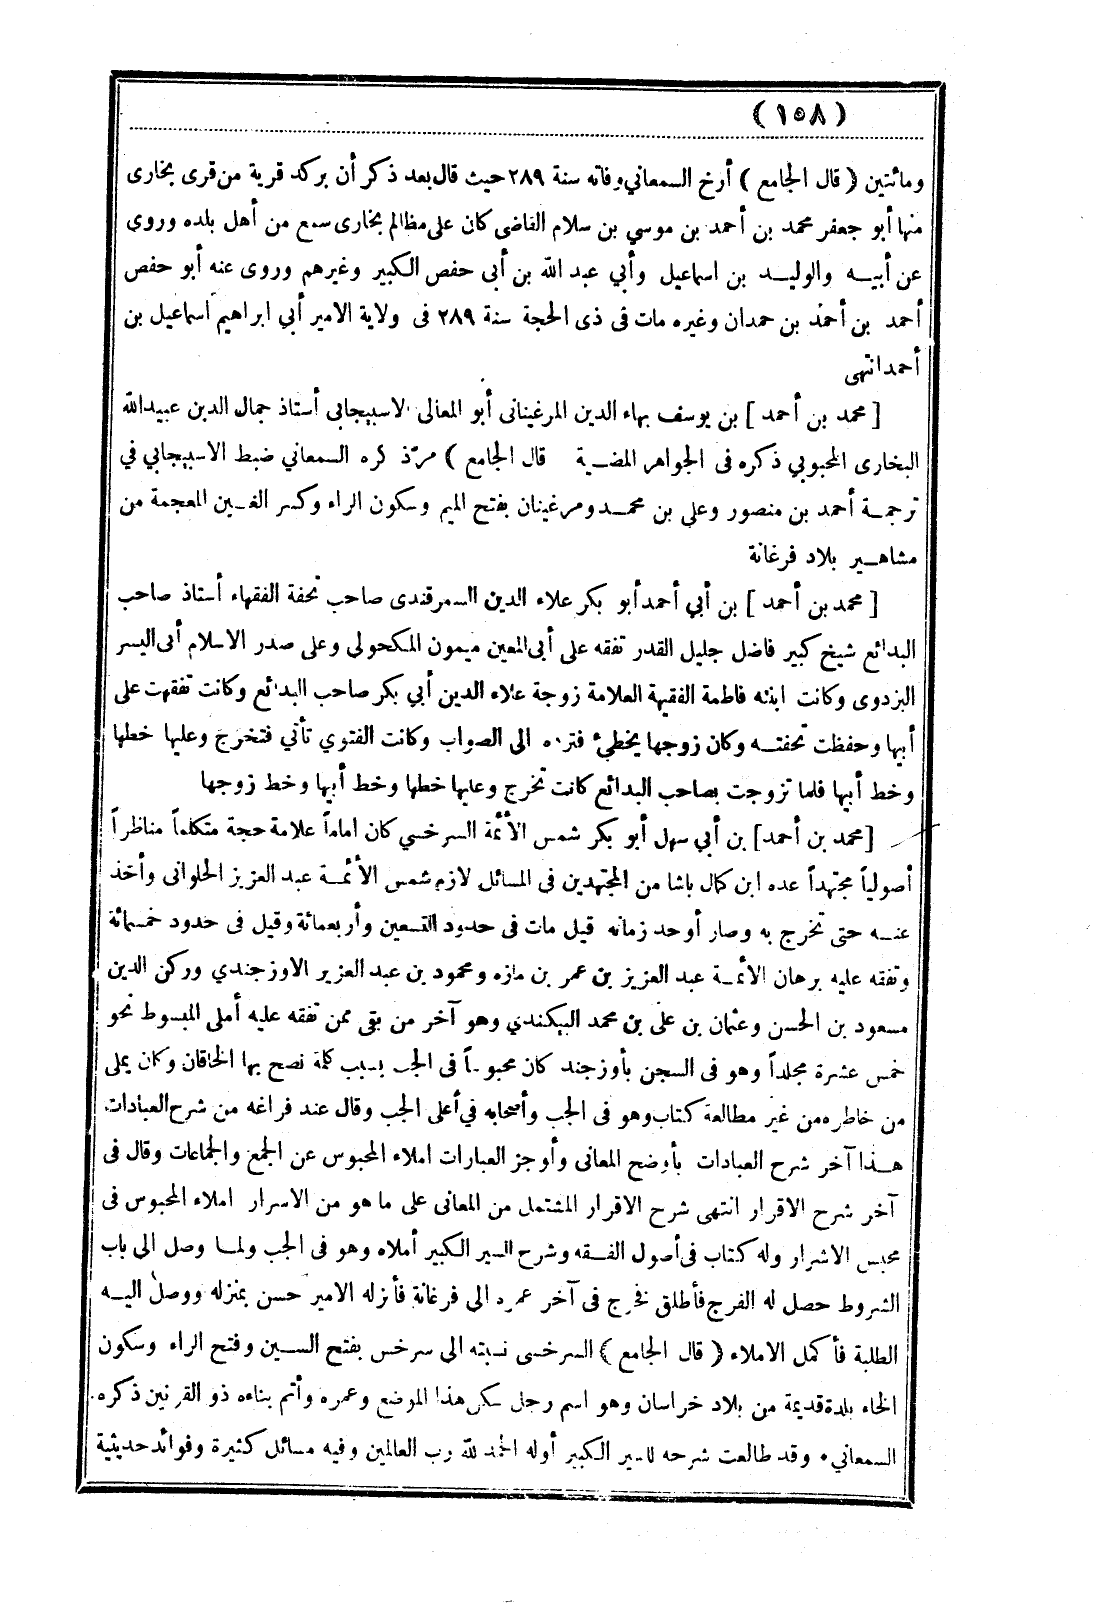 (١٥٨)
ومائتين (قال الجامع) أرخ السمعاني وفاته سنة ٢٨٩ حيث قال بعد ذكر أن بركد قرية من قرى بخارى
منها أبو جعفر محمد بن أحمد بن موسي بن سلام القاضى كان على مظالم بخارى سمع من أهل بلده وروى
عن أبيه والوليد بن اسماعيل وأبي عبد الله بن أبى حفص الكبير وغيرهم وروى عنه أبو حفص
أحمد بن أحمد بن حمدان وغيره مات فى ذى الحجة سنة ٢٨٩ فى ولاية الامير أبي ابراهيم اسماعيل بن
أحمد انتهى
[محمد بن أحمد] بن يوسف بهاء الدين المرغينانى أبو المعالى الاسبيجابى أستاذ جمال الدين عبيدالله
البخارى المحبوبي ذكره فى الجواهر المضية قال الجامع) مر ذكره السمعاني ضبط الاسبيجابي في
ترجمة أحمد بن منصور وعلى بن محمد ومرغينان بفتح الميم وسكون الراء وكسر الغين المعجمة من
مشاهير بلاد فرغانة
[محمد بن أحمد] بن أبي أحمد أبو بكر علاء الدين السمرقندى صاحب تحفة الفقهاء أستاذ صاحب
البدائع شيخ كبير فاضل جليل القدر تفقه على أبى المعين ميمون المكحولى وعلى صدر الاسلام أبى اليسر
البزدوى وكانت ابنته فاطمة الفقيهة العلامة زوجة علاء الدين أبي بكر صاحب البدائع وكانت تفقهت على
أبيها وحفظت تحفته وكان زوجها يخطئ فترده الى الصواب وكانت الفتوي تأتي فتخرج وعليها خطها
وخط أبيها فلما تزوجت بصاحب البدائع كانت تخرج وعليها خطها وخط أبيها وخط زوجها
[محمد بن أحمد] بن أبي سهل أبو بكر شمس الأئمة السرخسي كان اماماً علامة حجة متكلماً مناظراً
أصولياً مجتهداً عده ابن كمال باشا من المجتهدين فى المسائل لازم شمس الأئمة عبد العزيز الحلوانى وأخذ
عنه حتى تخرج به وصار أوحد زمانه قيل مات فى حدود التسعين وأربعمائة وقيل فى حدود خمسمائة
وتفقه عليه برهان الأئمة عبد العزيز بن عمر بن مازه ومحمود بن عبد العزيز الاوزجندي وركن الدين
مسعود بن الحسن وعثمان بن على بن محمد البيكندي وهو آخر من بقى ممن تفقه عليه أملى المبسوط نحو
خمس عشرة مجلداً وهو فى السجن بأوزجند كان محبوساً فى الجب بسبب كلمة نصح بها الخاقان وكان يملى
من خاطره من غير مطالعة كتاب وهو فى الجب وأصحابه في أعلى الجب وقال عند فراغه من شرح العبادات
هذا آخر شرح العبادات بأوضح المعانى وأوجز العبارات املاء المحبوس عن الجمع والجماعات وقال فى
آخر شرح الاقرار انتهى شرح الاقرار المشتمل من المعانى على ما هو من الاسرار املاء المحبوس فى
محبس الاشرار وله كتاب فى أصول الفقه وشرح السير الكبير أملاه وهو فى الجب ولما وصل الى باب
الشروط حصل له الفرج فأطلق فخرج فى آخر عمره الى فرغانة فأنزله الامير حسن بمنزله ووصل اليه
الطلبة فأكمل الاملاء (قال الجامع) السرخسى نسبته الى سرخس بفتح السين وفتح الراء وسكون
الخاء بلدة قديمة من بلاد خراسان وهو اسم رجل سكن هذا الموضع وعمره وأتم بناءه ذو القرنين ذكره
السمعاني • وقد طالعت شرحه للسير الكبير أوله الحمد لله رب العالمين وفيه مسائل كثيرة وفوائد حديثية